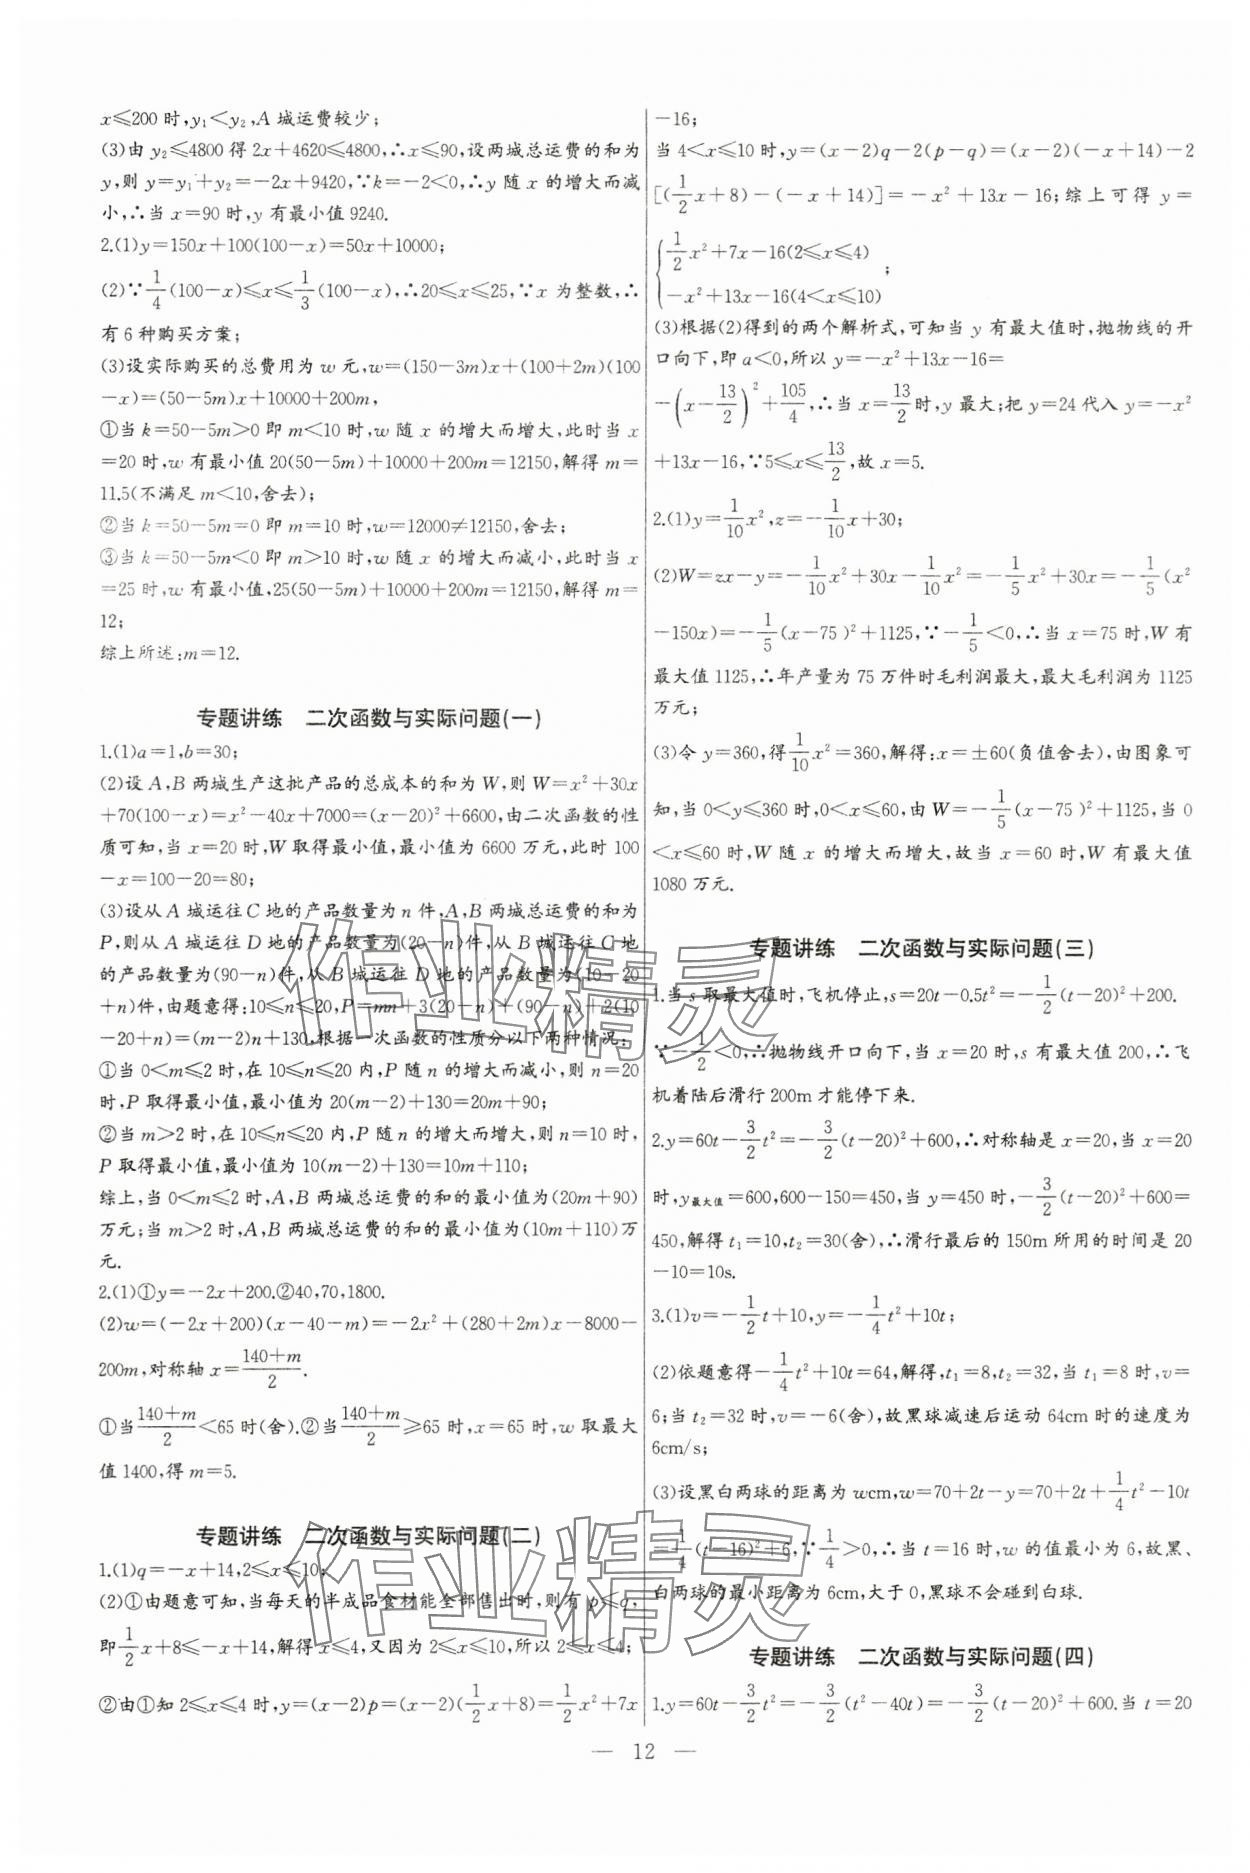 x≤200时,y₁<y₂,A城运费较少;
(3)由y₂≤4800得2x+4620≤4800,∴x≤90,设两城总运费的和为
y,则y=y₁+y₂=-2x+9420,∵k=-2<0,∴y随x的增大而减
小,∴当x=90时,y有最小值9240.
2.(1)y=150x+100(100-x)=50x+10000;
(2)∵1/4(100-x)≤x≤1/3(100-x),∴20≤x≤25,∵x为整数,∴
有6种购买方案;
(3)设实际购买的总费用为w元,w=(150-3m)x+(100+2m)(100
-x)=(50-5m)x+10000+200m,
①当k=50-5m>0即m<10时,w随x的增大而增大,此时当x
=20时,w有最小值20(50-5m)+10000+200m=12150,解得m=
11.5(不满足m<10,舍去);
②当k=50-5m=0即m=10时,w=12000≠12150,舍去;
③当k=50-5m<0即m>10时,w随x的增大而减小,此时当x
=25时,w有最小值,25(50-5m)+10000+200m=12150,解得m=
12;
综上所述:m=12.
专题讲练 二次函数与实际问题(一)
1.(1)a=1,b=30;
(2)设A,B两城生产这批产品的总成本的和为W,则W=x²+30x
+70(100-x)=x²-40x+7000=(x-20)²+6600,由二次函数的性
质可知,当x=20时,W取得最小值,最小值为6600万元,此时100
-x=100-20=80;
(3)设从A城运往C地的产品数量为n件,A,B两城总运费的和为
P,则从A城运往D地的产品数量为(20-n)件,从B城运往C地
的产品数量为(90-n)件,从B城运往D地的产品数量为(10-20
+n)件,由题意得:10≤n≤20,P=mn+3(20-n)+(90-n)+2(10
-20+n)=(m-2)n+130,根据一次函数的性质分以下两种情况:
①当0<m≤2时,在10≤n≤20内,P随n的增大而减小,则n=20
时,P取得最小值,最小值为20(m-2)+130=20m+90;
②当m>2时,在10≤n≤20内,P随n的增大而增大,则n=10时,
P取得最小值,最小值为10(m-2)+130=10m+110;
综上,当0<m≤2时,A,B两城总运费的和的最小值为(20m+90)
万元;当m>2时,A,B两城总运费的和的最小值为(10m+110)万
元.
2.(1)①y=-2x+200.②40,70,1800.
(2)w=(-2x+200)(x-40-m)=-2x²+(280+2m)x-8000-
200m,对称轴x=(140+m)/2.
①当(140+m)/2<65时(舍).②当(140+m)/2≥65时,x=65时,w取最大
值1400,得m=5.
专题讲练 二次函数与实际问题(二)
1.(1)q=-x+14,2≤x≤10;
(2)①由题意可知,当每天的半成品食材能全部售出时,则有p≤q,
即1/2x+8≤-x+14,解得x≤4,又因为2≤x≤10,所以2≤x≤4;
②由①知2≤x≤4时,y=(x-2)p=(x-2)(1/2x+8)=1/2x²+7x
-16;
当4<x≤10时,y=(x-2)q-2(p-q)=(x-2)(-x+14)-2
[(1/2x+8)-(-x+14)]=-x²+13x-16;综上可得y=
{1/2x²+7x-16(2≤x≤4)
-x²+13x-16(4<x≤10);
(3)根据(2)得到的两个解析式,可知当y有最大值时,抛物线的开
口向下,即a<0,所以y=-x²+13x-16=
-(x-13/2)²+105/4,∴当x=13/2时,y最大;把y=24代入y=-x²
+13x-16,∵5≤x≤13/2,故x=5.
2.(1)y=1/10x²,z=-1/10x+30;
(2)W=zx-y=-1/10x²+30x-1/10x²=-1/5x²+30x=-1/5(x²
-150x)=-1/5(x-75)²+1125,∵-1/5<0,∴当x=75时,W有
最大值1125,∴年产量为75万件时毛利润最大,最大毛利润为1125
万元;
(3)令y=360,得1/10x²=360,解得:x=±60(负值舍去),由图象可
知,当0<y≤360时,0<x≤60,由W=-1/5(x-75)²+1125,当0
<x≤60时,W随x的增大而增大,故当x=60时,W有最大值
1080万元.
专题讲练 二次函数与实际问题(三)
1.当s取最大值时,飞机停止,s=20t-0.5t²=-1/2(t-20)²+200.
∵-1/2<0,∴抛物线开口向下,当x=20时,s有最大值200,∴飞
机着陆后滑行200m才能停下来.
2.y=60t-3/2t²=-3/2(t-20)²+600,∴对称轴是x=20,当x=20
时,y最大值=600,600-150=450,当y=450时,-3/2(t-20)²+600=
450,解得t₁=10,t₂=30(舍),∴滑行最后的150m所用的时间是20
-10=10s.
3.(1)v=-1/2t+10,y=-1/4t²+10t;
(2)依题意得-1/4t²+10t=64,解得,t₁=8,t₂=32,当t₁=8时,v=
6;当t₂=32时,v=-6(舍),故黑球减速后运动64cm时的速度为
6cm/s;
(3)设黑白两球的距离为wcm,w=70+2t-y=70+2t+1/4t²-10t
=1/4(t-16)²+6,∵1/4>0,∴当t=16时,w的值最小为6,故黑、
白两球的最小距离为6cm,大于0,黑球不会碰到白球.
专题讲练 二次函数与实际问题(四)
1.y=60t-3/2t²=-3/2(t²-40t)=-3/2(t-20)²+600.当t=20
— 12 —
作业精灵
作业精灵